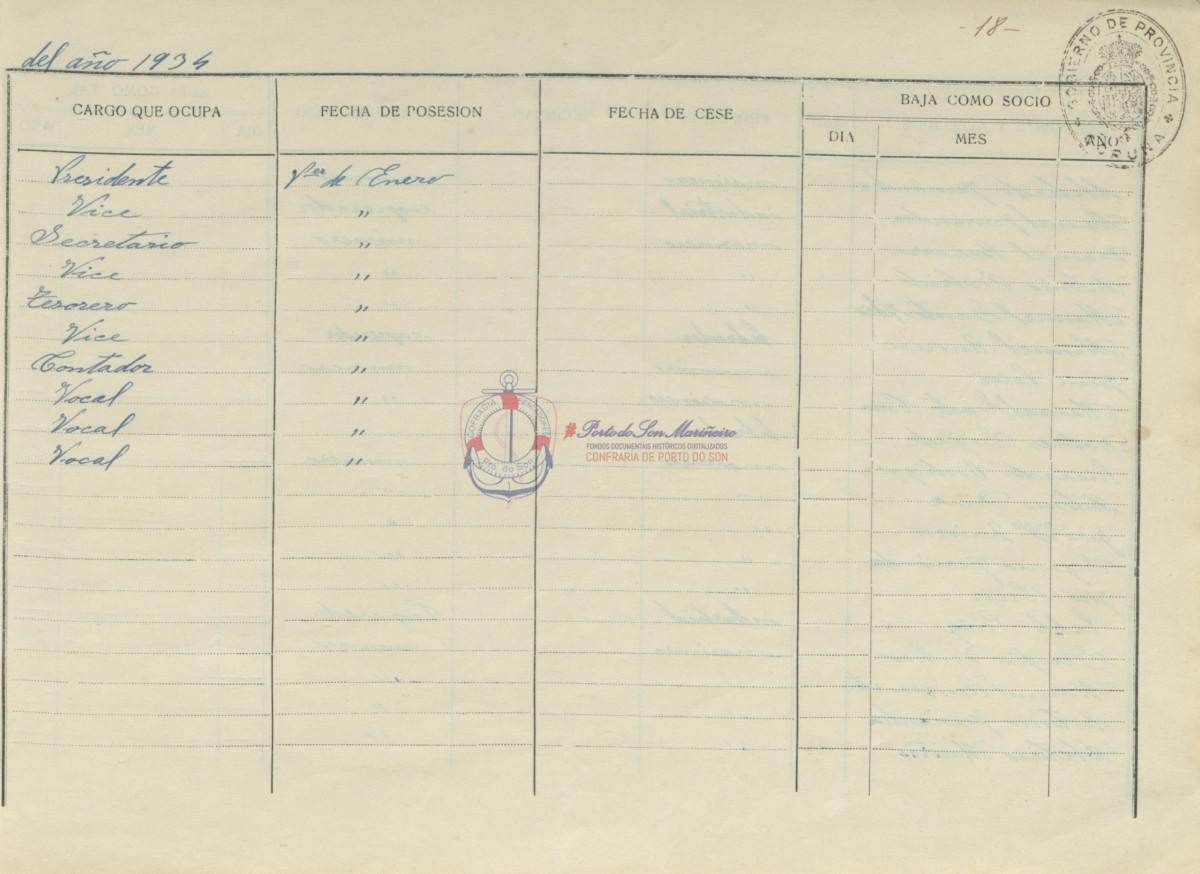 -18-
GOBIERNO DE PROVINCIA * CORUÑA *
del año 1934
CARGO QUE OCUPA FECHA DE POSESION FECHA DE CESE BAJA COMO SOCIO
DIA MES AÑO
Presidente 1er de Enero
Vice "
Secretario "
Vice "
Tesorero "
Vice "
Contador "
Vocal "
Vocal "
Vocal "
COFRADIA PESCADORES
Pto. do Son
#Porto do Son Mariñeiro
FONDOS DOCUMENTAIS HISTÓRICOS DIGITALIZADOS
CONFRARÍA DE PORTO DO SON